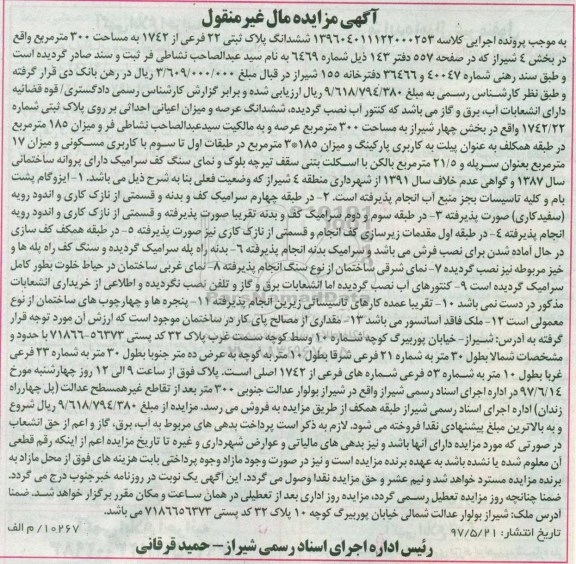 آگهی مزایده مال غیرمنقول
به موجب پرونده اجرایی کلاسه ۱۳۹۶۰۴۰۱۱۱۲۲۰۰۰۲۵۳ ششدانگ پلاک ثبتی ۲۲ فرعی از ۱۷۴۲ به مساحت ۳۰۰ مترمربع واقع
در بخش ۴ شیراز که در صفحه ۵۵۷ دفتر ۱۴۳ ذیل شماره ۶۴۶۹ به نام سید عبدالصاحب نشاطی فر ثبت و سند صادر گردیده است
و طبق سند رهنی شماره ۴۰۰۴۷ و ۳۶۴۶۶ دفترخانه ۱۵۵ شیراز در قبال مبلغ ۳/۶۰۹/۰۰۰/۰۰۰ ریال در رهن بانک دی قرار گرفته
و طبق نظر کارشناس رسمی به مبلغ ۹/۶۱۸/۷۹۴/۳۸۰ ریال ارزیابی شده و برابر گزارش کارشناس رسمی دادگستری/ قوه قضائیه
دارای انشعابات آب، برق و گاز می باشد که کنتور آب نصب گردیده، ششدانگ عرصه و میزان اعیانی احداثی بر روی پلاک ثبتی شماره
۱۷۴۲/۲۲ واقع در بخش چهار شیراز به مساحت ۳۰۰ مترمربع عرصه و به مالکیت سیدعبدالصاحب نشاطی فر و میزان ۱۸۵ مترمربع
در طبقه همکف به عنوان پیلت به کاربری پارکینگ و میزان ۱۸۵*۳ مترمربع در طبقات اول تا سوم با کاربری مسکونی و میزان ۱۷
مترمربع بعنوان سرپله و ۲۱/۵ مترمربع بالکن با اسکلت بتنی سقف تیرچه بلوک و نمای سنگ کف سرامیک دارای پروانه ساختمانی
سال ۱۳۸۷ و گواهی عدم خلاف سال ۱۳۹۱ از شهرداری منطقه ۴ شیراز که وضعیت فعلی بنا به شرح ذیل می باشد. ۱- ایزوگام پشت
بام و کلیه تاسیسات بجز منبع آب انجام پذیرفته است. ۲- در طبقه چهارم سرامیک کف و بدنه و قسمتی از نازک کاری و اندود رویه
(سفیدکاری) صورت پذیرفته ۳- در طبقه سوم و دوم سرامیک کف و بدنه تقریبا صورت پذیرفته و قسمتی از نازک کاری و اندود رویه
انجام پذیرفته ۴- در طبقه اول مقدمات زیرسازی کف انجام و قسمتی از نازک کاری نیز صورت پذیرفته ۵- در طبقه همکف کف سازی
در حال آماده شدن برای نصب فرش می باشد و سرامیک بدنه انجام پذیرفته ۶- بدنه راه پله سرامیک گردیده و سنگ کف راه پله ها و
خیز مربوطه نیز نصب گردیده ۷- نمای شرقی ساختمان از نوع سنگ انجام پذیرفته ۸- نمای غربی ساختمان در حیاط خلوت بطور کامل
سرامیک گردیده است ۹- کنتورهای آب نصب گردیده اما انشعابات برق و گاز و تلفن نصب نگردیده و اطلاعی از خریداری انشعابات
مذکور در دست نمی باشد ۱۰- تقریبا عمده کارهای تاسیساتی زیرین انجام پذیرفته ۱۱- پنجره ها و چهارچوب های ساختمان از نوع
معمولی است ۱۲- ملک فاقد آسانسور می باشد ۱۳- مقداری از مصالح پای کار در ساختمان موجود است که ارزش آن مورد توجه قرار
گرفته به آدرس: شیراز- خیابان پوربیرگ کوچه شماره ۱۰ وسط کوچه سمت غرب پلاک ۳۲ کد پستی ۵۶۳۷۳-۷۱۸۶۶ با حدود و
مشخصات شمالا بطول ۳۰ متر به شماره ۲۱ فرعی شرقا بطول ۱۰ متر به کوچه به عرض ده متر جنوبا بطول ۳۰ متر به شماره ۲۳ فرعی
غربا بطول ۱۰ متر به شماره ۵۳ فرعی شماره های فرعی از ۱۷۴۲ اصلی است. پلاک فوق از ساعت ۹ الی ۱۲ روز چهارشنبه مورخ
۹۷/۶/۱۴ در اداره اجرای اسناد رسمی شیراز واقع در شیراز بولوار عدالت جنوبی ۳۰۰ متر بعد از تقاطع غیرهمسطح عدالت (پل چهارراه
زندان) اداره اجرای اسناد رسمی شیراز طبقه همکف از طریق مزایده به فروش می رسد. مزایده از مبلغ ۹/۶۱۸/۷۹۴/۳۸۰ ریال شروع
و به بالاترین مبلغ پیشنهادی نقدا فروخته می شود. لازم به ذکر است پرداخت بدهی های مربوط به آب، برق، گاز و اعم از حق انشعاب
در صورتی که مورد مزایده دارای آنها باشد و نیز بدهی های مالیاتی و عوارض شهرداری و غیره تا تاریخ مزایده اعم از اینکه رقم قطعی
آن معلوم شده یا نشده باشد به عهده برنده مزایده است و نیز در صورت وجود مازاد وجوه پرداختی بابت هزینه های فوق از محل مازاد به
برنده مزایده مسترد خواهد شد و نیم عشر و حق مزایده نقدا وصول می گردد. این آگهی یک نوبت در روزنامه خبرجنوب درج می گردد.
ضمنا چنانچه روز مزایده تعطیل رسمی گردد، مزایده روز اداری بعد از تعطیلی در همان ساعت و مکان مقرر برگزار خواهد شد. ضمنا
آدرس ملک: شیراز بولوار عدالت شمالی خیابان پوربیرگ کوچه ۱۰ پلاک ۳۲ کد پستی ۷۱۸۶۶۵۶۳۷۳ می باشد.
تاریخ انتشار: ۹۷/۵/۲۱
۱۰۲۶۷/م الف
رئیس اداره اجرای اسناد رسمی شیراز- حمید قرقانی